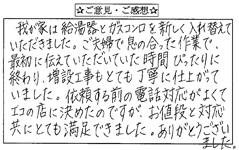 ☆ご意見・ご感想☆
我が家は給湯器とガスコンロを新しく入れ替えて
いただきました。ご夫婦で息の合った作業で、
最初に伝えていただいていた時間ぴったりに
終わり、増設工事もとても丁寧に仕上がって
いました。依頼する前の電話対応がよくて
エコの店に決めたのですが、お値段と対応
共にとても満足できました。ありがとうござい
ました。